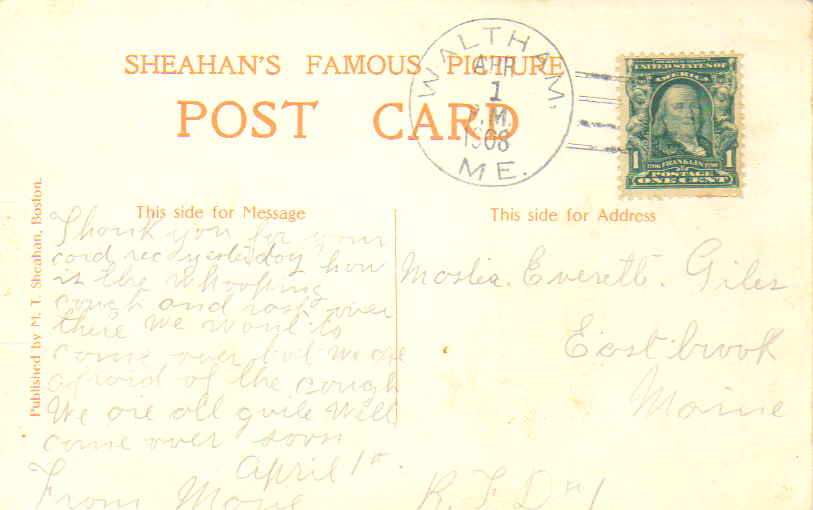 SHEAHAN'S FAMOUS PICTURE
POST CARD
WALTHAM,
APR
1
P.M.
1908
ME.
UNITED STATES OF
AMERICA
1 FRANKLIN 1
POSTAGE
ONE CENT
This side for Message
This side for Address
Published by M. T. Sheahan, Boston.
Thank you for your
card rec yesterday how
is the whooping
cough and rash over
there We want to
come over but we are
afraid of the cough
We are all quite well
come over soon
April 1st.
From Marie
Master. Everett. Giles
Eastbrook
Maine
R. F. D #1